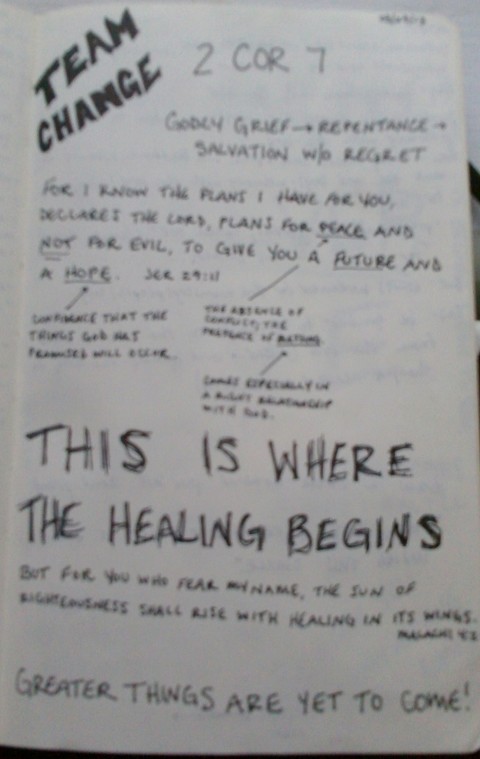 TEAM
CHANGE
2 COR 7
GODLY GRIEF → REPENTANCE →
SALVATION W/O REGRET
FOR I KNOW THE PLANS I HAVE FOR YOU,
DECLARES THE LORD, PLANS FOR PEACE AND
NOT FOR EVIL, TO GIVE YOU A FUTURE AND
A HOPE. JER 29:11
CONFIDENCE THAT THE
THINGS GOD HAS
PROMISED WILL OCCUR.
THE ABSENCE OF
CONFLICT; THE
PRESENCE OF
COMES ESPECIALLY IN
A RIGHT RELATIONSHIP
WITH GOD.
THIS IS WHERE
THE HEALING BEGINS
BUT FOR YOU WHO FEAR MY NAME, THE SUN OF
RIGHTEOUSNESS SHALL RISE WITH HEALING IN ITS WINGS.
MALACHI 4:2
GREATER THINGS ARE YET TO COME!